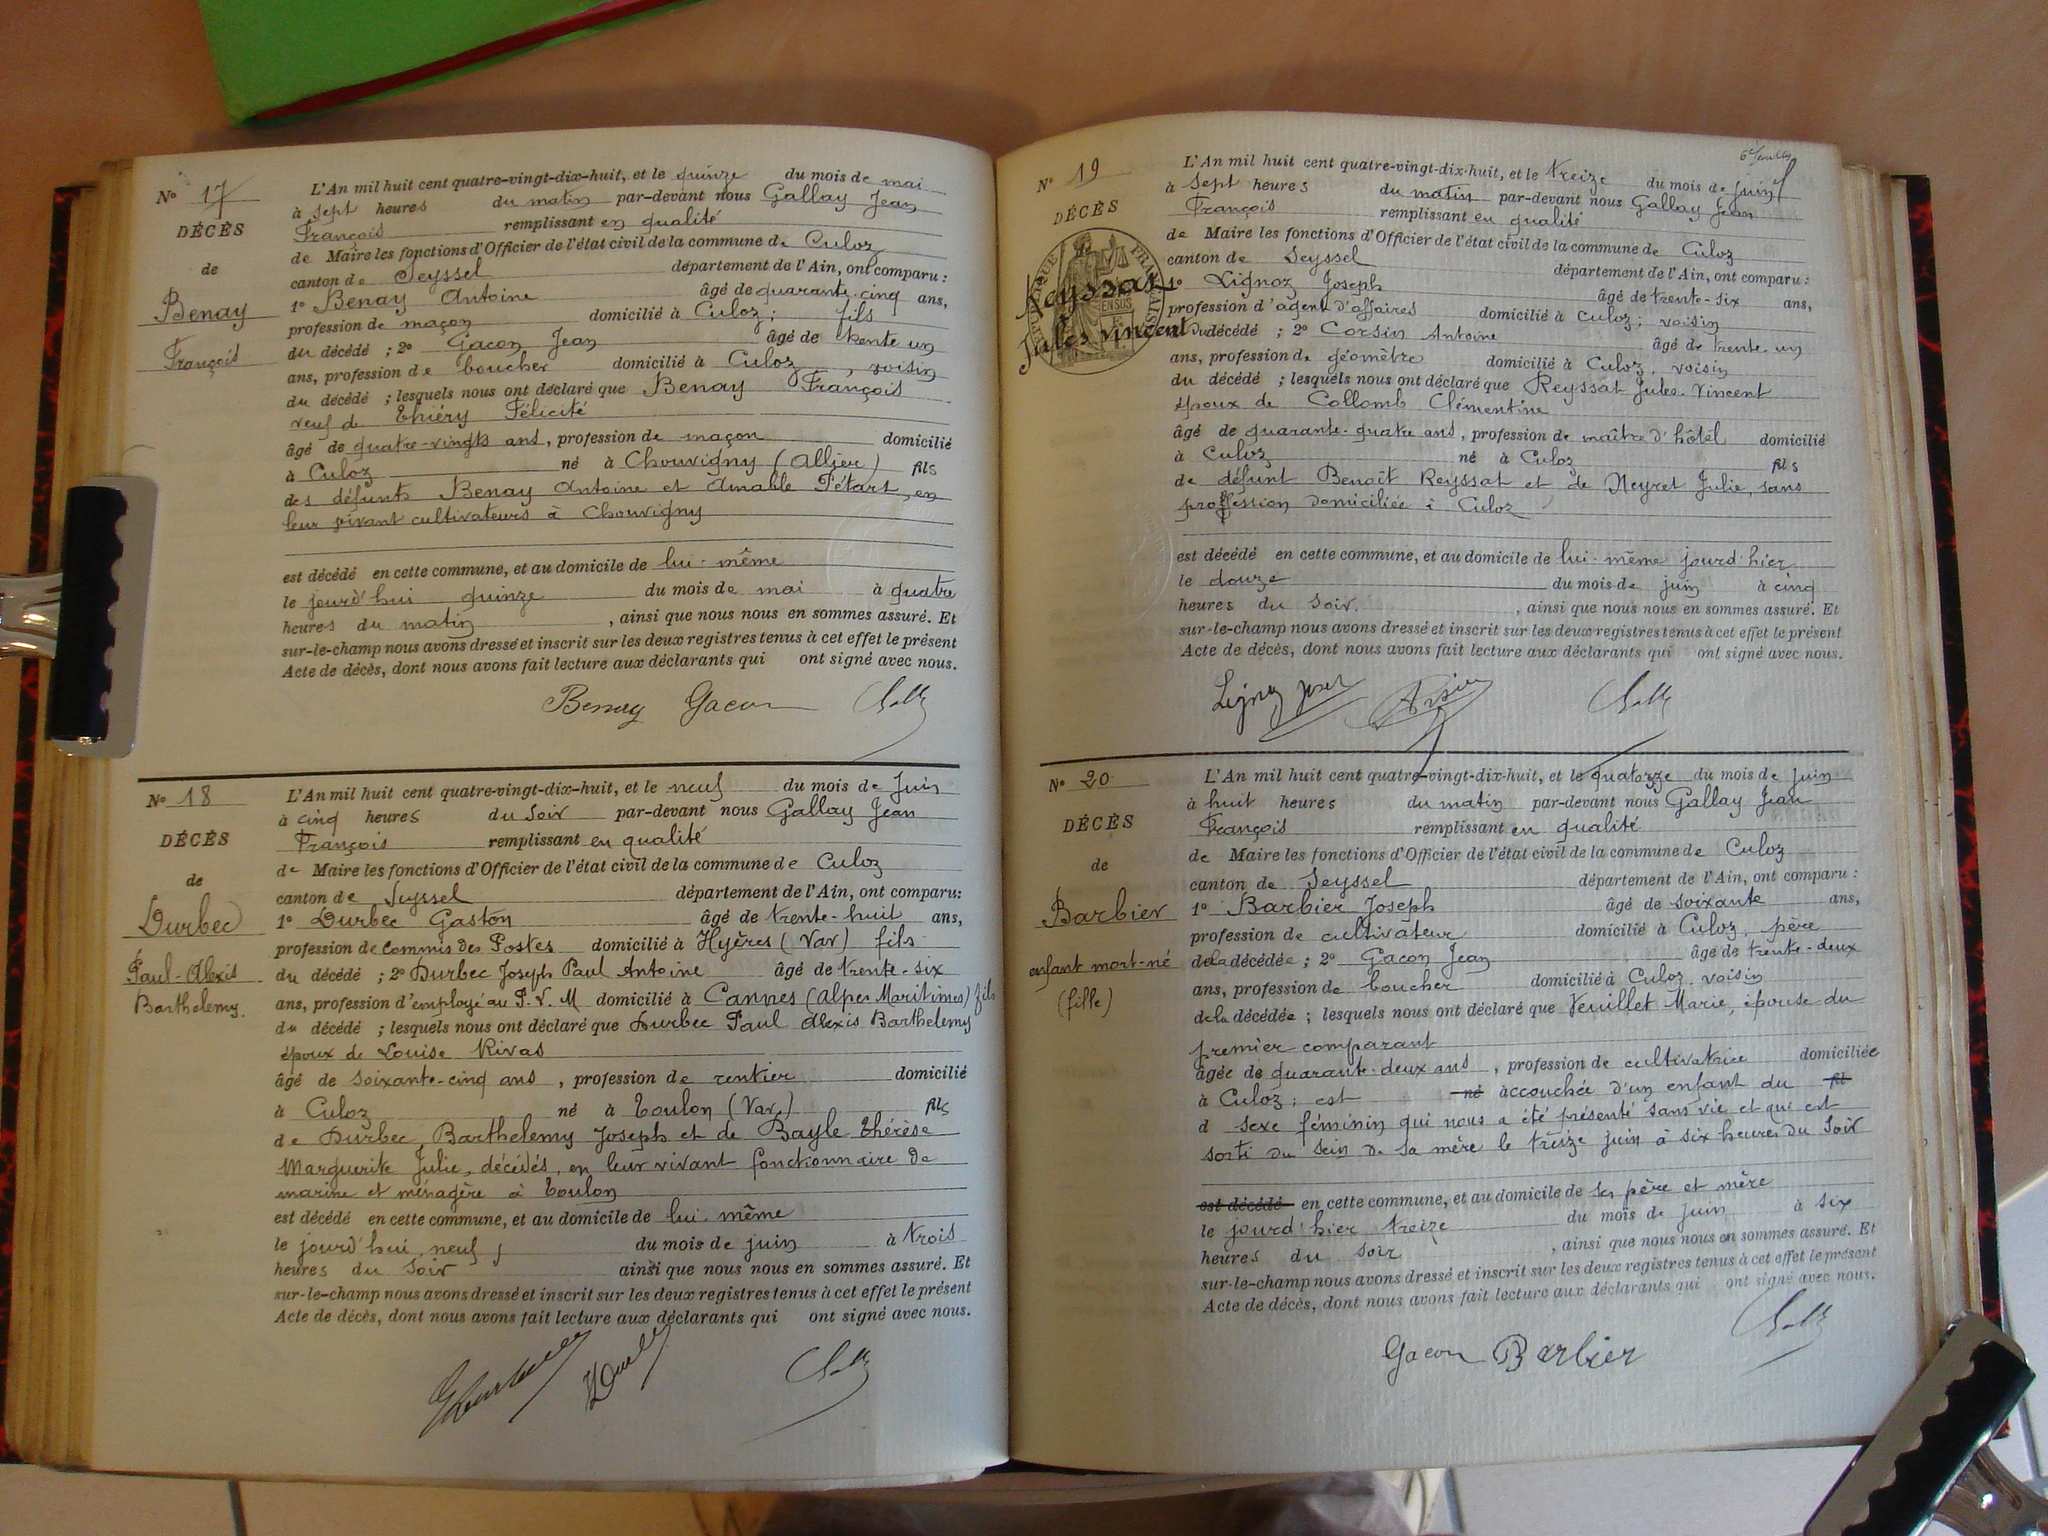 N° 17
DÉCÈS
de
Benay
François
L'An mil huit cent quatre-vingt-dix-huit, et le quinze du mois de mai
à sept heures du matin par-devant nous Gallay Jean
François remplissant en qualité
de Maire les fonctions d'Officier de l'état civil de la commune de Culoz
canton de Seyssel département de l'Ain, ont comparu :
1° Benay Antoine âgé de quarante-cinq ans,
profession de maçon domicilié à Culoz ; fils
du décédé ; 2° Gacon Jean âgé de trente un
ans, profession de boucher domicilié à Culoz, voisin
du décédé ; lesquels nous ont déclaré que Benay François
veuf de Thiéry Félicité
âgé de quatre-vingts ans, profession de maçon domicilié
à Culoz né à Chouvigny (Allier) fils
des défunts Benay Antoine et Amable Pétart, en
leur vivant cultivateurs à Chouvigny
est décédé en cette commune, et au domicile de lui-même
le jourd'hui quinze du mois de mai à quatre
heures du matin, ainsi que nous nous en sommes assuré. Et
sur-le-champ nous avons dressé et inscrit sur les deux registres tenus à cet effet le présent
Acte de décès, dont nous avons fait lecture aux déclarants qui ont signé avec nous.
Benay Gacon
N° 18
DÉCÈS
de
Durbec
Paul-Alexis
Barthelemy.
L'An mil huit cent quatre-vingt-dix-huit, et le neuf du mois de Juin
à cinq heures du soir par-devant nous Gallay Jean
François remplissant en qualité
de Maire les fonctions d'Officier de l'état civil de la commune de Culoz
canton de Seyssel département de l'Ain, ont comparu :
1° Durbec Gaston âgé de trente-huit ans,
profession de commis des Postes domicilié à Hyères (Var) fils
du décédé ; 2° Durbec Joseph Paul Antoine âgé de trente-six
ans, profession d'employé au P. V. M domicilié à Cannes (Alpes Maritimes) fils
du décédé ; lesquels nous ont déclaré que Durbec Paul Alexis Barthelemy
époux de Louise Rivas
âgé de soixante-cinq ans, profession de rentier domicilié
à Culoz né à Toulon (Var) fils
de Durbec Barthelemy Joseph et de Bayle Thérèse
Marguerite Julie, décédés, en leur vivant fonctionnaire de
marine et ménagère à Toulon
est décédé en cette commune, et au domicile de lui-même
le jourd'hui neuf, du mois de juin à trois
heures du soir ainsi que nous nous en sommes assuré. Et
sur-le-champ nous avons dressé et inscrit sur les deux registres tenus à cet effet le présent
Acte de décès, dont nous avons fait lecture aux déclarants qui ont signé avec nous.
N° 19
DÉCÈS
Reyssat
Jules Vincent
L'An mil huit cent quatre-vingt-dix-huit, et le treize du mois de juin
à sept heures du matin par-devant nous Gallay Jean
François remplissant en qualité
de Maire les fonctions d'Officier de l'état civil de la commune de Culoz
canton de Seyssel département de l'Ain, ont comparu :
1° Lignoz Joseph âgé de trente-six ans,
profession d'agent d'affaires domicilié à Culoz ; voisin
du décédé ; 2° Corsin Antoine âgé de trente-un
ans, profession de géomètre domicilié à Culoz, voisin
du décédé ; lesquels nous ont déclaré que Reyssat Jules-Vincent
époux de Collomb Clémentine
âgé de quarante-quatre ans, profession de maître d'hôtel domicilié
à Culoz né à Culoz fils
de défunt Benoît Reyssat et de Neyret Julie, sans
profession domiciliée à Culoz
est décédé en cette commune, et au domicile de lui-même jourd'hier
le douze du mois de juin à cinq
heures du soir., ainsi que nous nous en sommes assuré. Et
sur-le-champ nous avons dressé et inscrit sur les deux registres tenus à cet effet le présent
Acte de décès, dont nous avons fait lecture aux déclarants qui ont signé avec nous.
N° 20
DÉCÈS
de
Barbier
enfant mort-né
(fille)
L'An mil huit cent quatre-vingt-dix-huit, et le quatorze du mois de juin
à huit heures du matin par-devant nous Gallay Jean
François remplissant en qualité
de Maire les fonctions d'Officier de l'état civil de la commune de Culoz
canton de Seyssel département de l'Ain, ont comparu :
1° Barbier Joseph âgé de soixante ans,
profession de cultivateur domicilié à Culoz, père
de la décédée ; 2° Gacon Jean âgé de trente-deux
ans, profession de boucher domicilié à Culoz, voisin
de la décédée ; lesquels nous ont déclaré que Veuillet Marie, épouse du
premier comparant
âgée de quarante-deux ans, profession de cultivatrice domiciliée
à Culoz ; est né accouchée d'un enfant du fil
d sexe féminin qui nous a été présenté sans vie et qui est
sorti du sein de sa mère le treize juin à six heures du soir
est décédé en cette commune, et au domicile de ses père et mère
le jourd'hier treize du mois de juin à six
heures du soir, ainsi que nous nous en sommes assuré. Et
sur-le-champ nous avons dressé et inscrit sur les deux registres tenus à cet effet le présent
Acte de décès, dont nous avons fait lecture aux déclarants qui ont signé avec nous.
Gacon Barbier